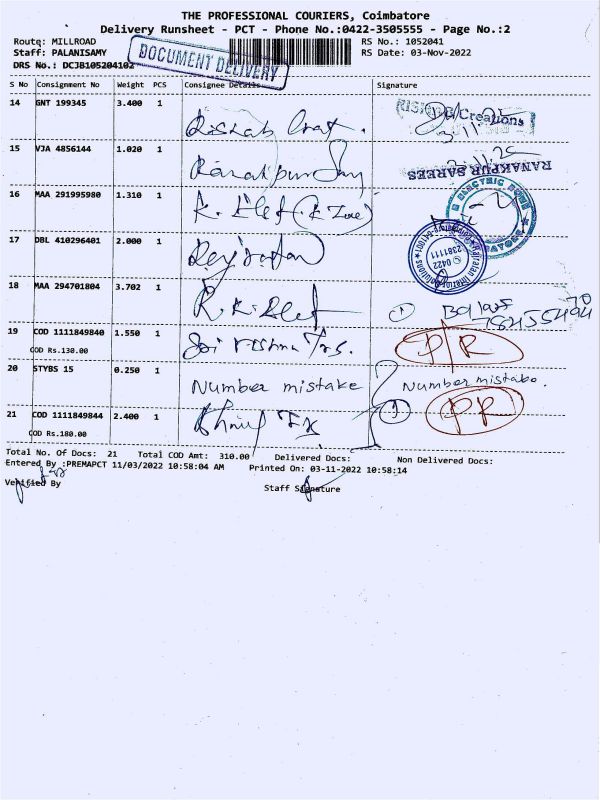 THE PROFESSIONAL COURIERS, Coimbatore
Delivery Runsheet - PCT - Phone No.:0422-3505555 - Page No.:2
Route: MILLROAD
RS No.: 1052041
Staff: PALANISAMY
RS Date: 03-Nov-2022
DRS No.: DCJB105204102
DOCUMENT DELIVERY
S No Consignment No Weight PCS Consignee Details Signature
14 GNT 199345 3.400 1
Creations
15 VJA 4856144 1.020 1
RANAKPUR SAREES
16 MAA 291995980 1.310 1
ELECTRIC
17 DBL 410296401 2.000 1
0422 2381111
18 MAA 294701804 3.702 1 R.K.
19 COD 1111849840 1.550 1 Sai
COD Rs.130.00
20 STYBS 15 0.250 1 Number mistake Number mistake.
21 COD 1111849844 2.400 1
COD Rs.180.00
Total No. Of Docs: 21 Total COD Amt: 310.00 Delivered Docs: Non Delivered Docs:
Entered By :PREMAPCT 11/03/2022 10:58:04 AM Printed On: 03-11-2022 10:58:14
Verified By
Staff Signature